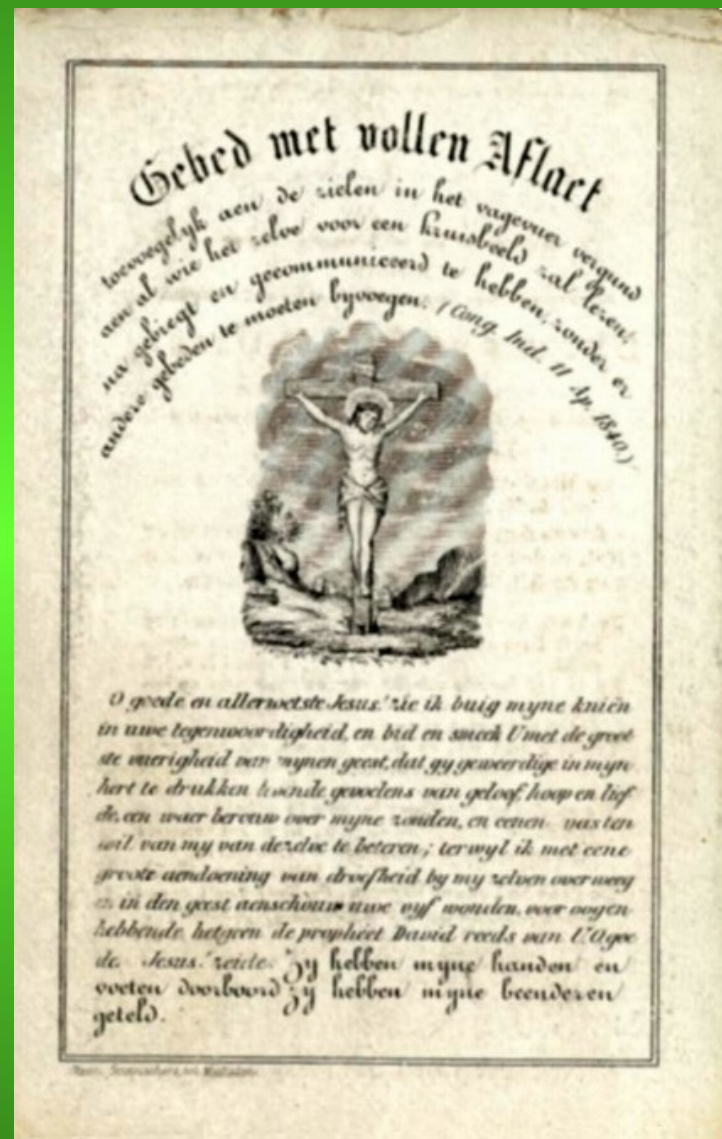 Gebed met vollen Aflaet
toevoegelyk aen de zielen in het vagevuer vergund
aen al wie het zelve voor een kruisbeeld zal lezen;
na gebiegt en gecommuniceerd te hebben, zonder er
andere gebeden te moeten byvoegen. (Cong. Ind. 11 Ap. 1840.)
O goede en allerzoetste Jesus! zie ik buig myne kniën
in uwe tegenwoordigheid, en bid en smeek U met de groot
ste vuerigheid van mynen geest, dat gy geweerdige in myn
hert te drukken levende gevoelens van geloof, hoop en lief
de, een waer berouw over myne zonden, en eenen vasten
wil van my van dezelve te beteren; terwyl ik met eene
groote aendoening van droefheid by my zelven overweeg
en in den geest aenschouw uwe vyf wonden, voor oogen
hebbende, hetgeen de propheet David reeds van U, O goe
de Jesus! zeide: Zy hebben myne handen en
voeten doorboord zy hebben myne beenderen
geteld.